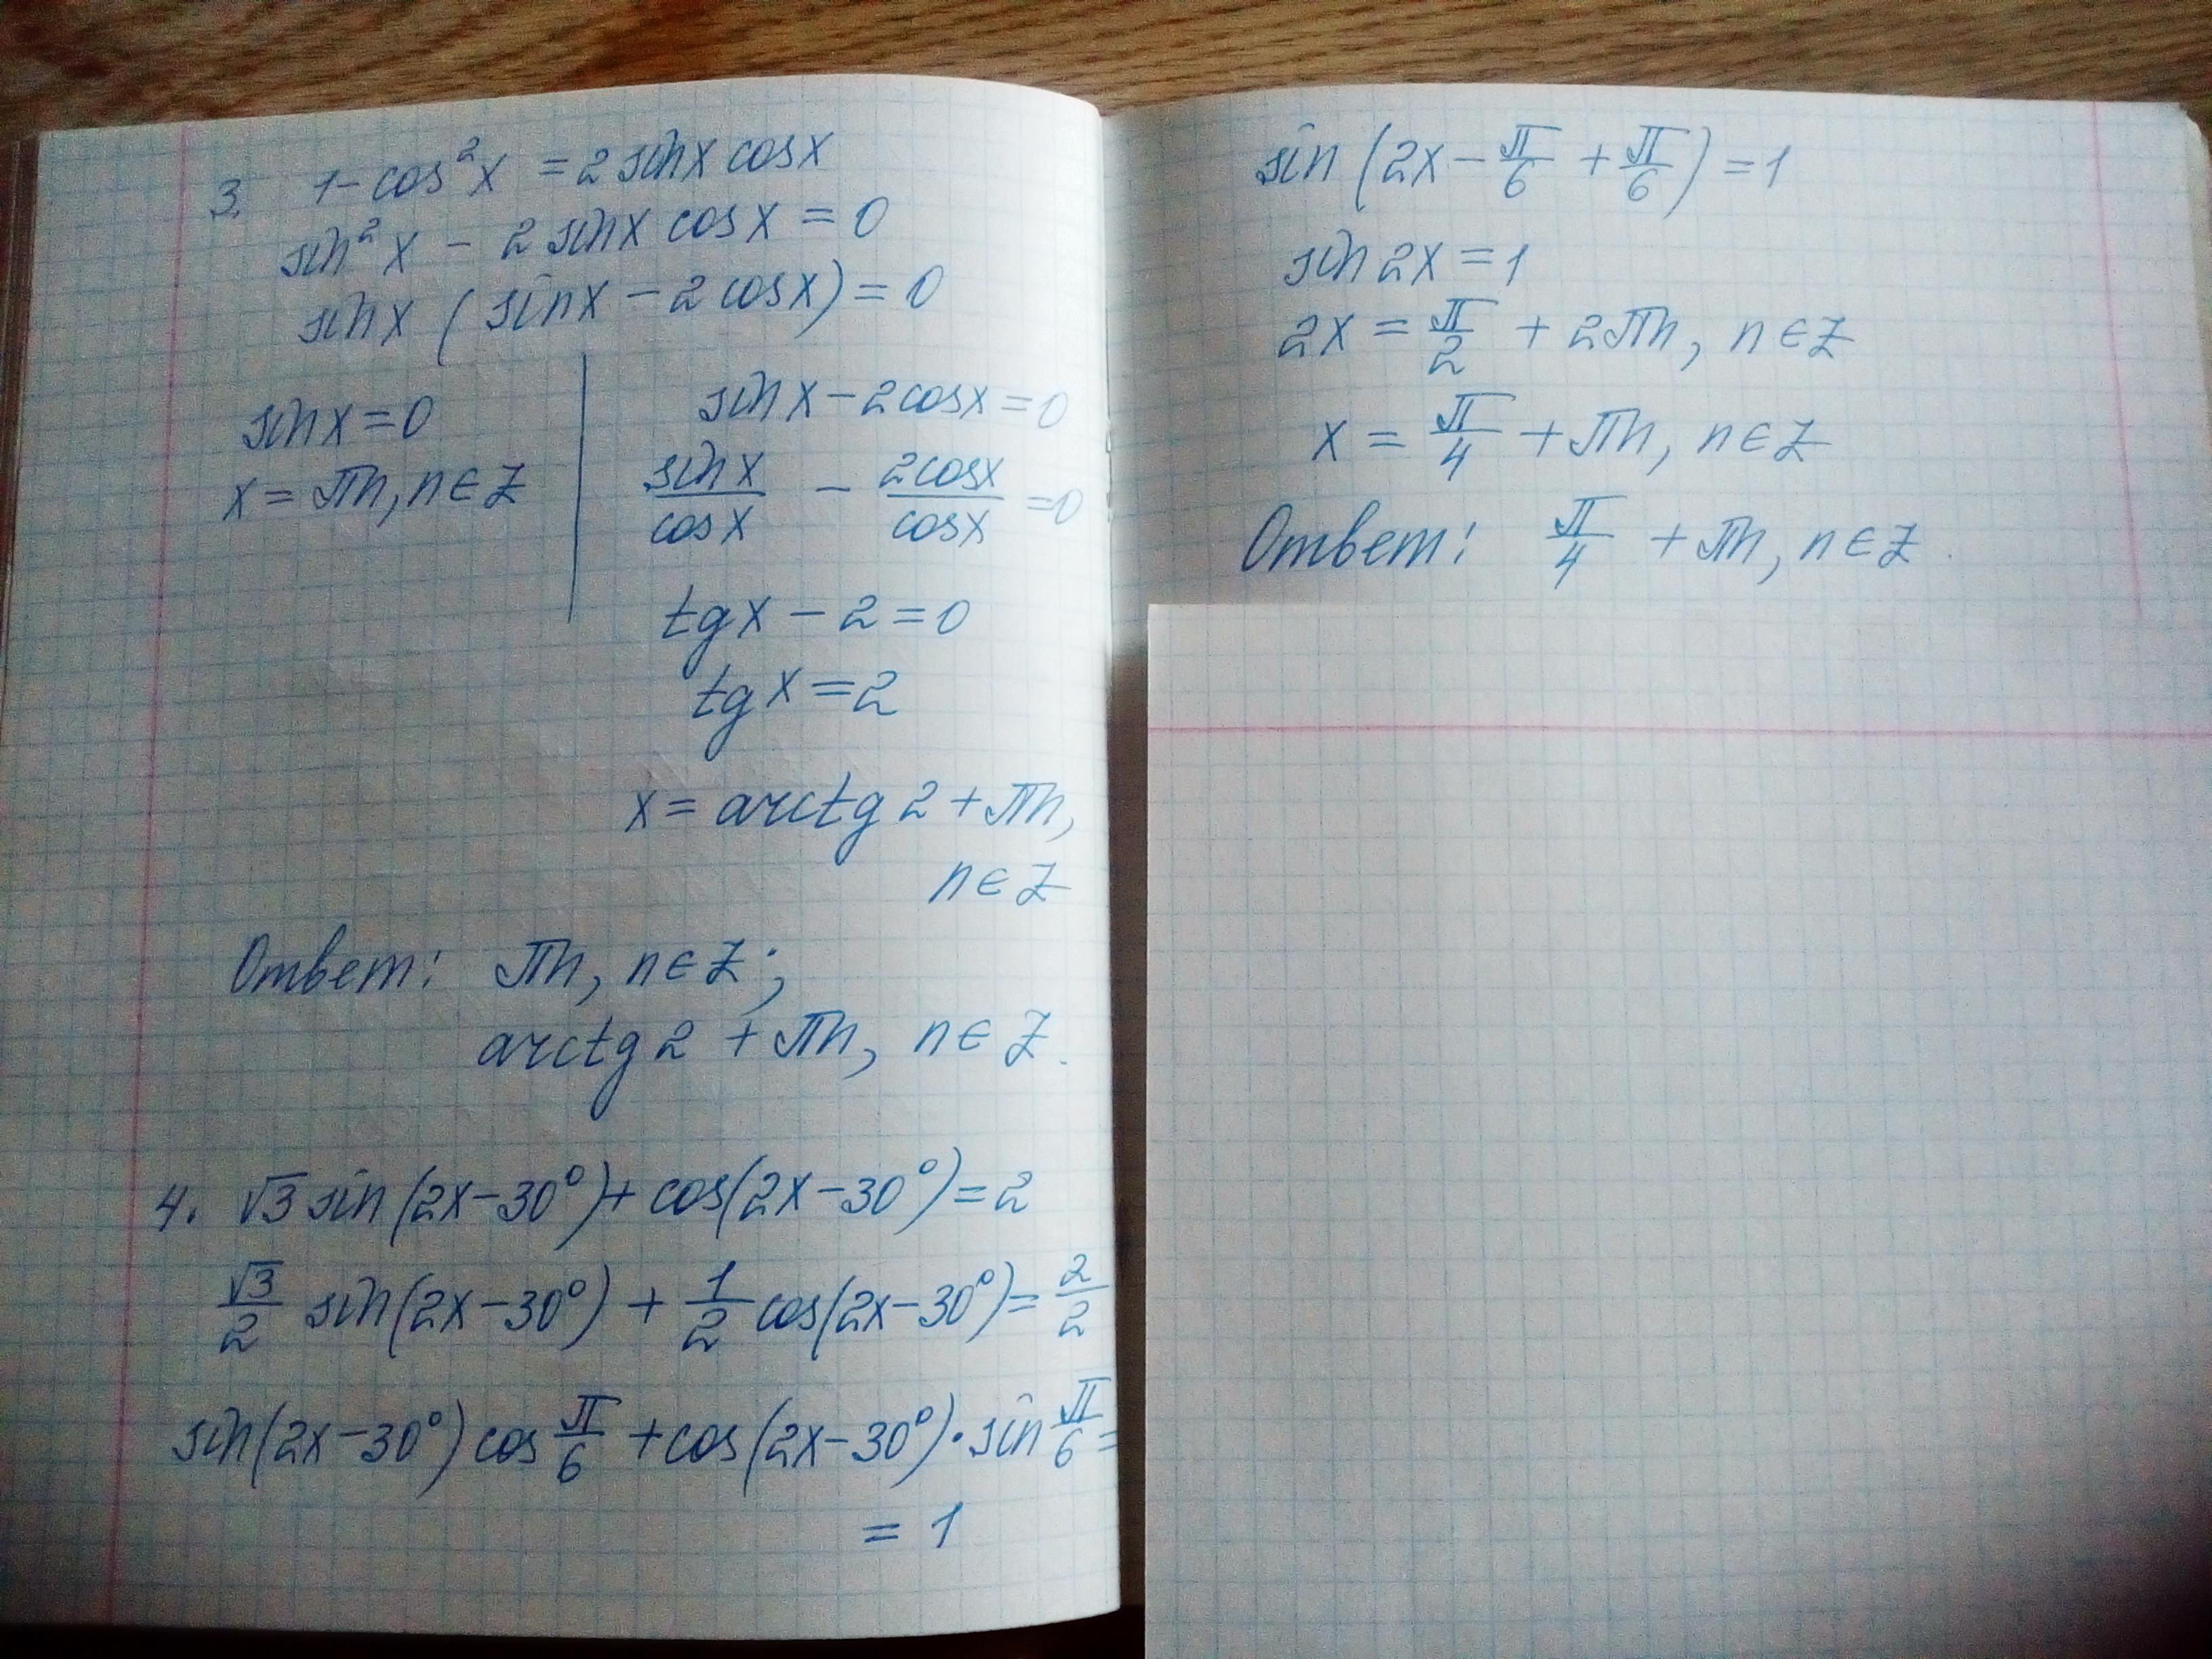 3. 1 - cos²x = 2 sin x cos x
sin²x - 2 sin x cos x = 0
sin x (sin x - 2 cos x) = 0
sin x = 0
x = πn, n ∈ Z
sin x - 2 cos x = 0
sin x / cos x - 2 cos x / cos x = 0
tg x - 2 = 0
tg x = 2
x = arctg 2 + πn,
n ∈ Z
Ответ: πn, n ∈ Z;
arctg 2 + πn, n ∈ Z.
4. √3 sin (2x - 30°) + cos (2x - 30°) = 2
√3/2 sin (2x - 30°) + 1/2 cos (2x - 30°) = 2/2
sin (2x - 30°) cos π/6 + cos (2x - 30°) · sin π/6 =
= 1
sin (2x - π/6 + π/6) = 1
sin 2x = 1
2x = π/2 + 2πn, n ∈ Z
x = π/4 + πn, n ∈ Z
Ответ: π/4 + πn, n ∈ Z.